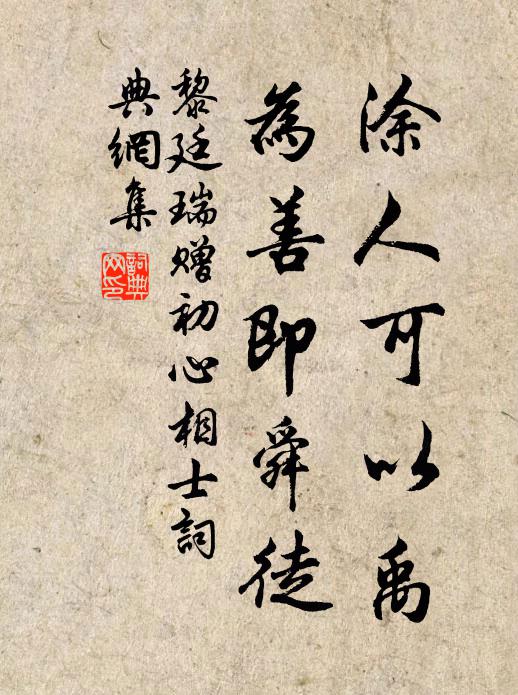 涂人可以禹
為善即舜徒
黎廷瑞贈初心相士詞
典網集
詞典網印